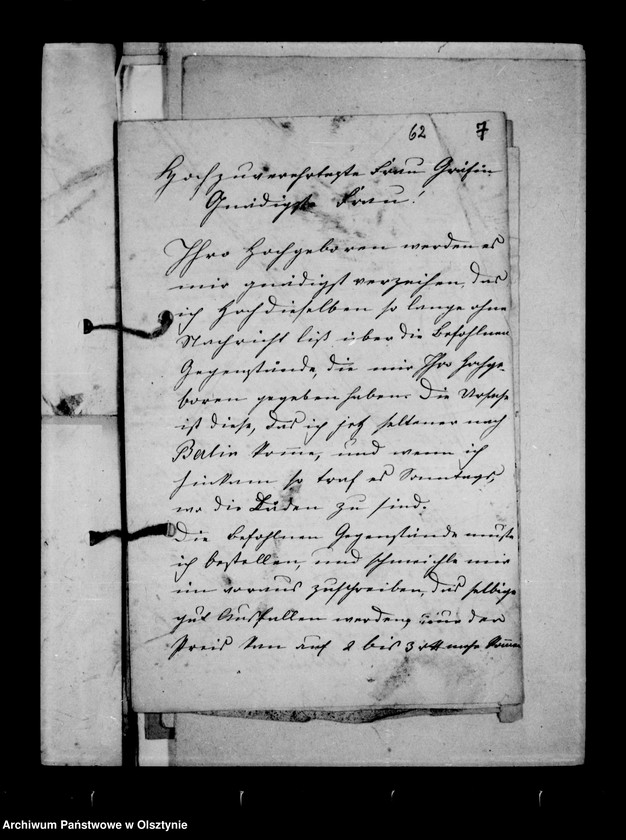 62 7
Hochzuverehrteste Frau Gräfin
Gnädigste Frau!
Ihro Hochgeboren werden es
mir gnädigst verzeihen, das
ich Hochdieselben so lange ohne
Nachricht liß über die Befohlnen
Gegenstände, die mir Ihro Hochge-
boren gegeben haben. Die Ursache
ist diese, das ich jetz seltener nach
Berlin kome, und wenn ich
hinkam so traf es Sonntags,
wo die Läden zu sind.
Die Befohlnen Gegenstände muste
ich bestellen, und schmeichle mir
im voraus zuschreiben, das selbige
gut Ausfallen werden, nur der
Preis kan auf 2 bis 3 mehr komen
Archiwum Państwowe w Olsztynie